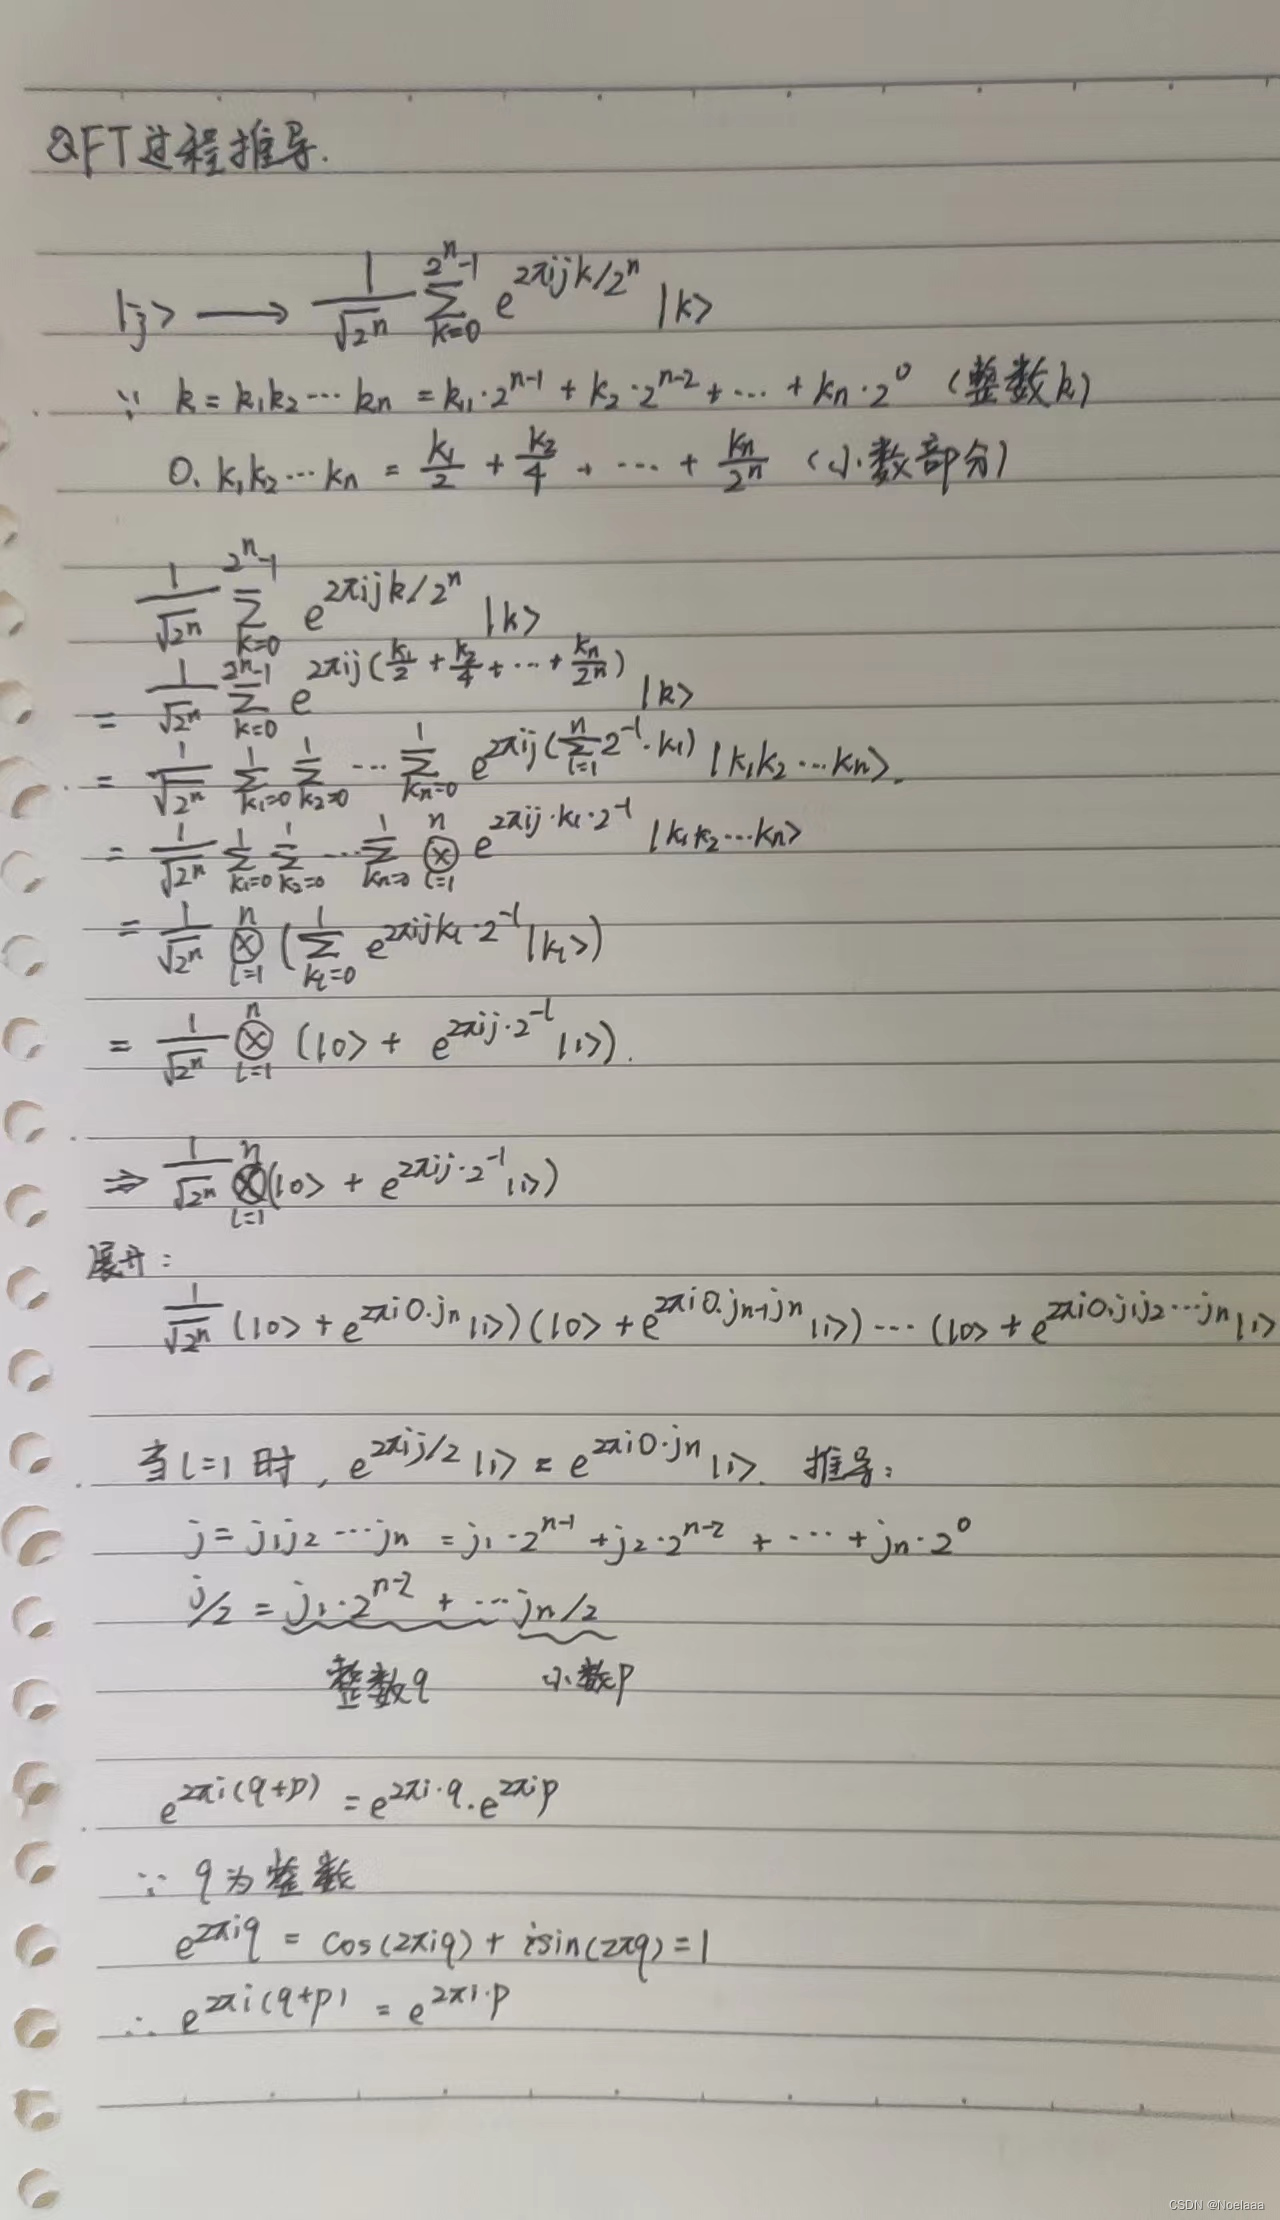 QFT过程推导.
|j> ⟶ 1/√2ⁿ ∑_{k=0}^{2ⁿ-1} e^{2πijk/2ⁿ} |k>
∵ k = k₁k₂⋯kn = k₁·2^{n-1} + k₂·2^{n-2} + ⋯ + kn·2⁰ (整数k)
0.k₁k₂⋯kn = k₁/2 + k₂/4 + ⋯ + kn/2ⁿ (小数部分)
1/√2ⁿ ∑_{k=0}^{2ⁿ-1} e^{2πijk/2ⁿ} |k>
= 1/√2ⁿ ∑_{k=0}^{2ⁿ-1} e^{2πij(k₁/2 + k₂/4 + ⋯ + kn/2ⁿ)} |k>
= 1/√2ⁿ ∑_{k₁=0}^{1} ∑_{k₂=0}^{1} ⋯ ∑_{kn=0}^{1} e^{2πij(∑_{l=1}^{n} 2^{-l}·k_l)} |k₁k₂⋯kn>.
= 1/√2ⁿ ∑_{k₁=0}^{1} ∑_{k₂=0}^{1} ⋯ ∑_{kn=0}^{1} ⊗_{l=1}^{n} e^{2πij·k_l·2^{-l}} |k₁k₂⋯kn>
= 1/√2ⁿ ⊗_{l=1}^{n} (∑_{k_l=0}^{1} e^{2πijk_l·2^{-l}} |k_l>)
= 1/√2ⁿ ⊗_{l=1}^{n} (|0> + e^{2πij·2^{-l}} |1>).
⇒ 1/√2ⁿ ⊗_{l=1}^{n} (|0> + e^{2πij·2^{-l}} |1>)
展开:
1/√2ⁿ (|0> + e^{2πi0.jn} |1>)(|0> + e^{2πi0.jn-1jn} |1>)⋯(|0> + e^{2πi0.j₁j₂⋯jn} |1>
当l=1时, e^{2πij/2} |1> = e^{2πi0.jn} |1>. 推导:
j = j₁j₂⋯jn = j₁·2^{n-1} + j₂·2^{n-2} + ⋯ + jn·2⁰
j/2 = j₁·2^{n-2} + ⋯ jn/2
整数q 小数p
e^{2πi(q+p)} = e^{2πi·q}·e^{2πip}
∵ q为整数
e^{2πiq} = cos(2πiq) + isin(2πq) = 1
∴ e^{2πi(q+p)} = e^{2πi·p}
CSDN @Noelaaa